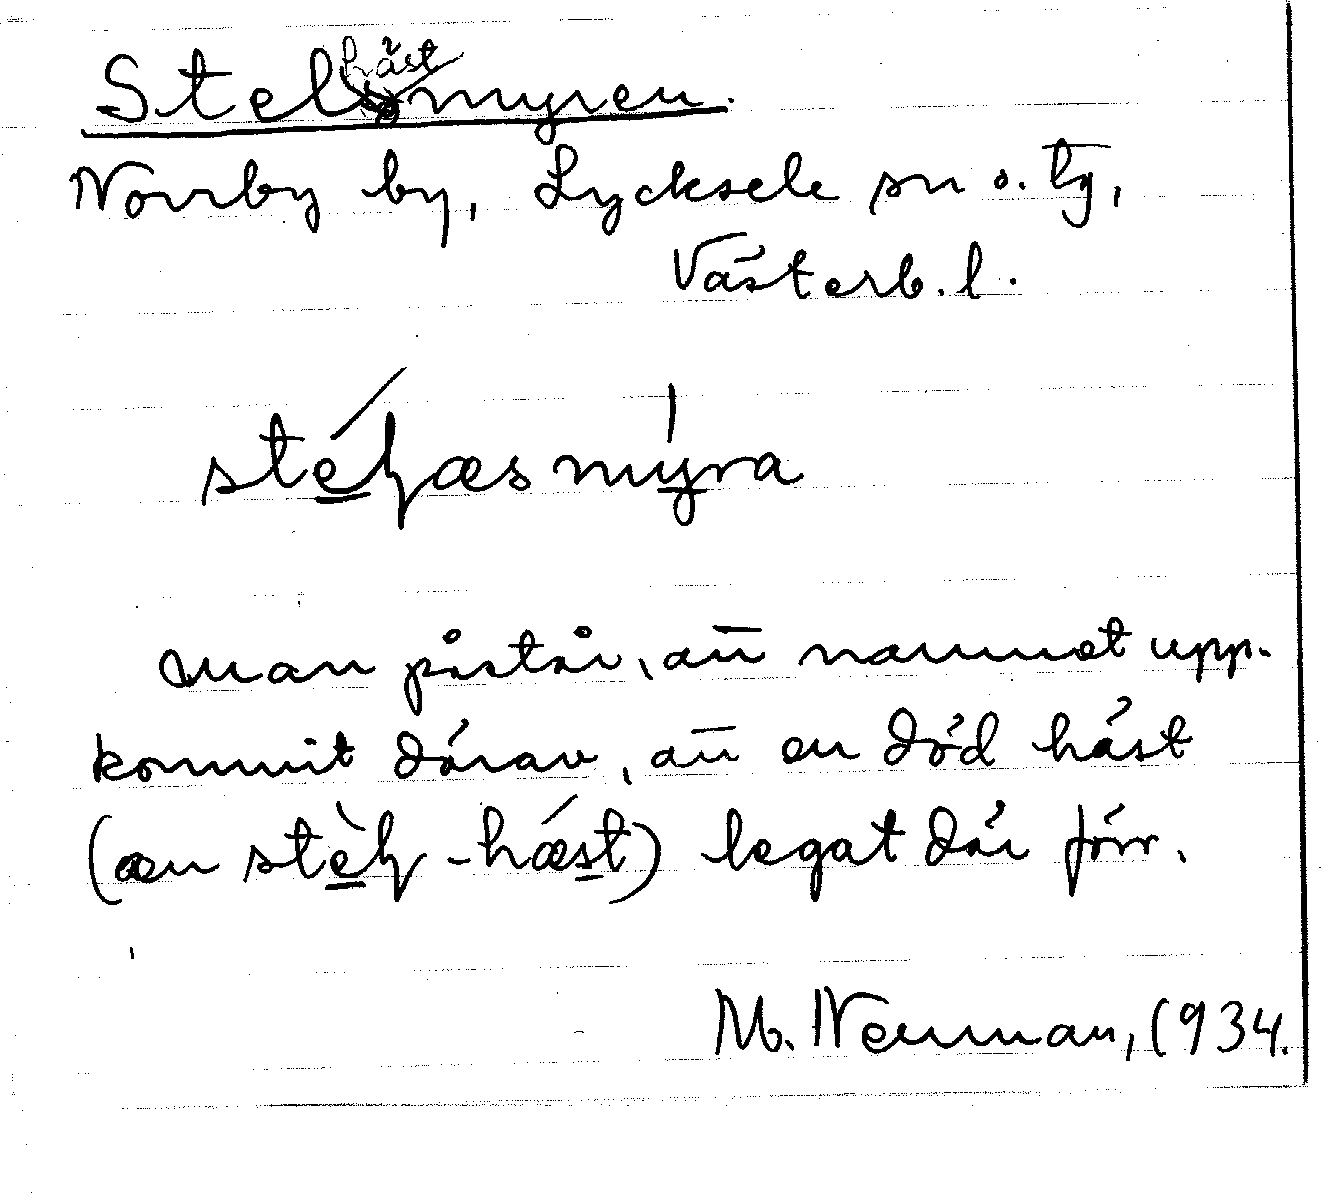 Stelhästmyren.
Norrby by, Lycksele sn o. tg,
Västerb. l.
stéɧæsmýra
man påstår, att namnet upp-
kommit därav, att en död häst
(æn stèɧ-hæst) legat där förr.
M. Neuman, 1934.